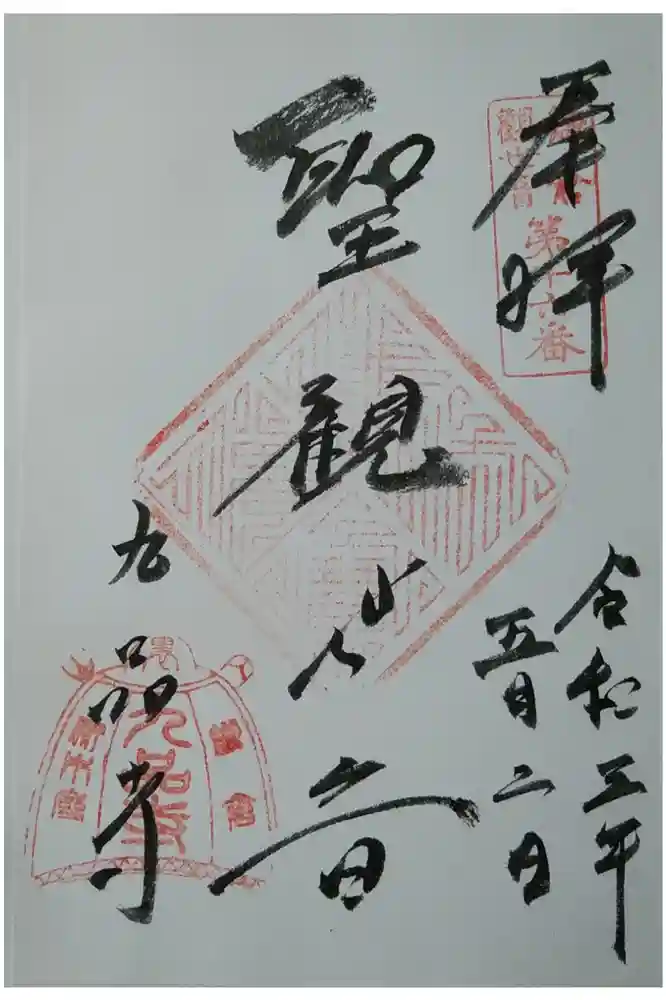 奉拝
鎌倉
観世音
第十六番
令和三年
五月二日
聖観世音
九品寺
鎌倉
九品寺
材木座